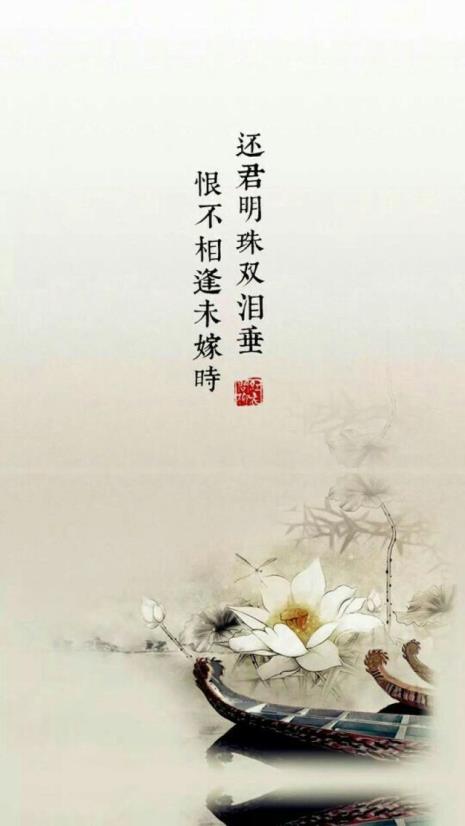 还君明珠双泪垂
恨不相逢未嫁時